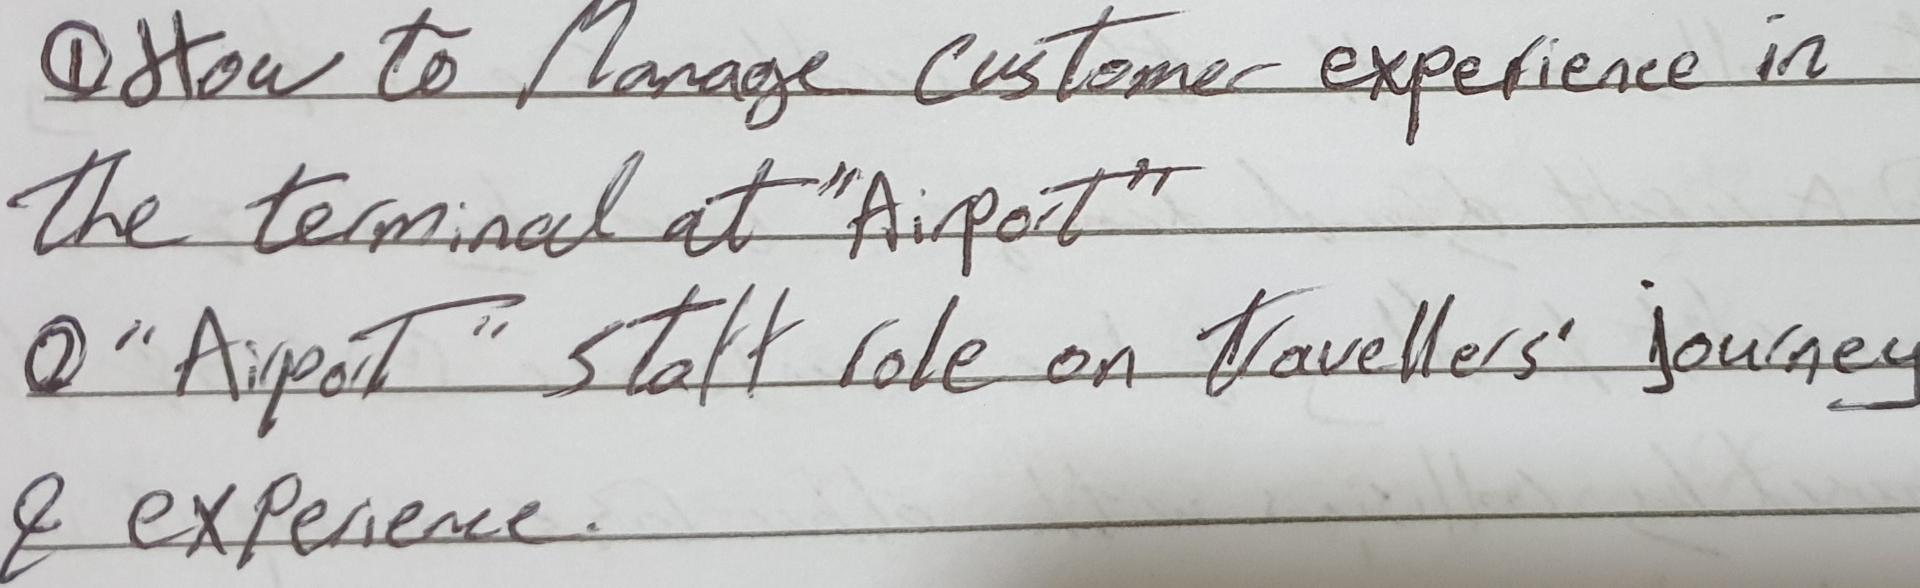 ① How to Manage customer experience in
the terminal at "Airport"
② "Airport" staff role on travellers' journey
& experience.